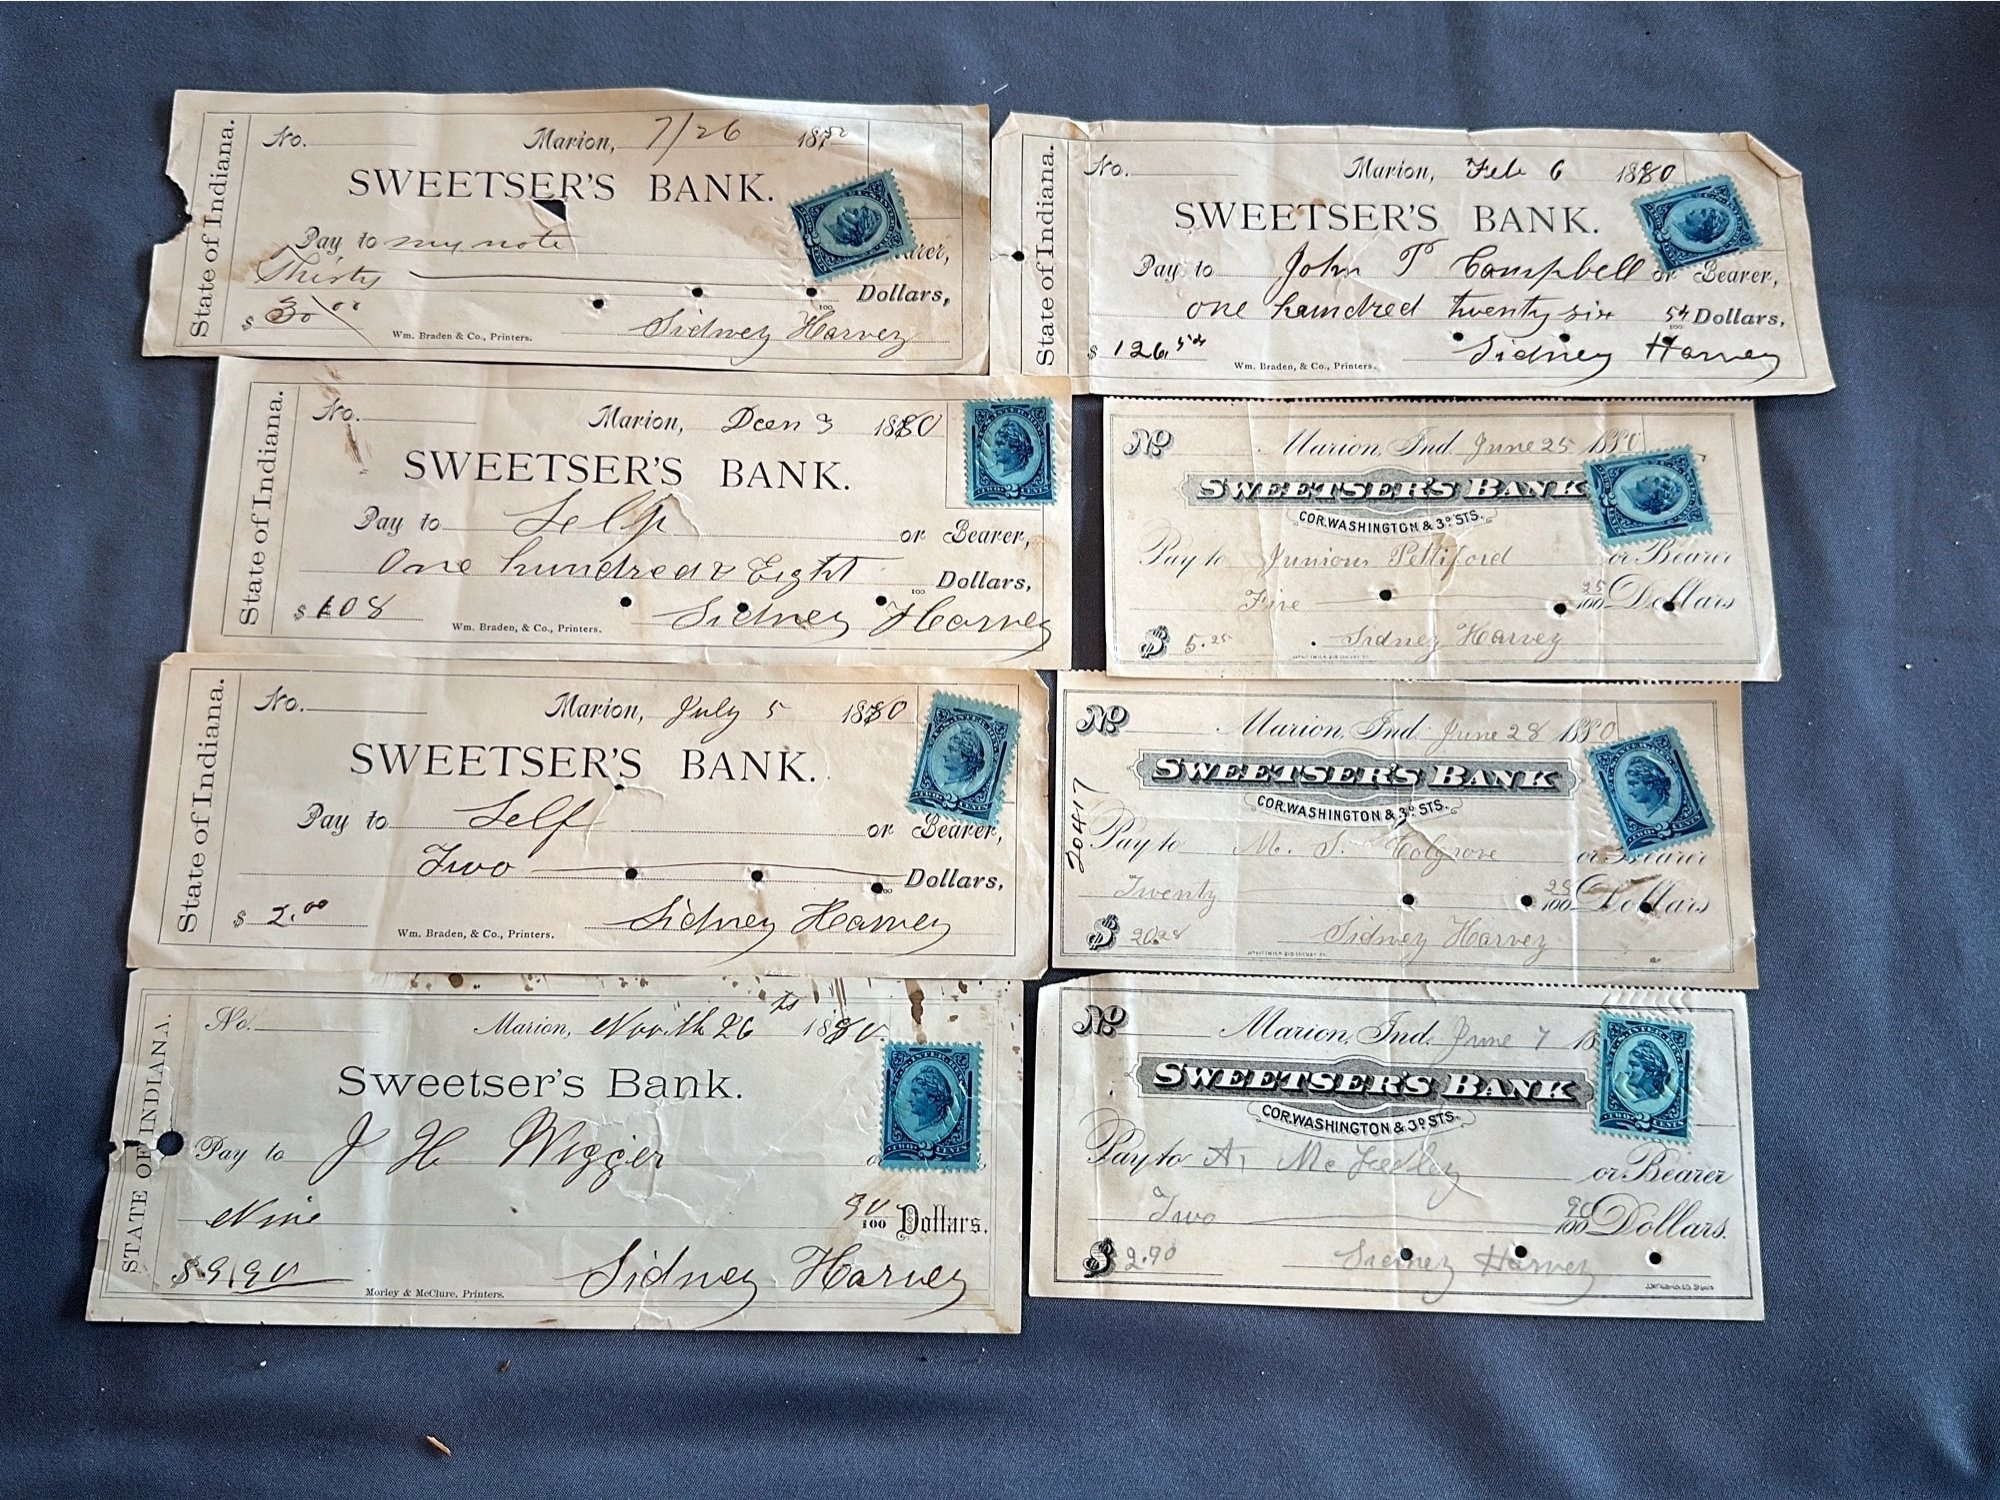 State of Indiana.
No. Marion, 7/26 18
SWEETSER'S BANK.
Pay to my note arer,
Thirty Dollars,
$ 30 00
Sidney Harvey
Wm. Braden & Co., Printers.
State of Indiana.
No. Marion, Feb 6 1880
SWEETSER'S BANK.
Pay to John T Campbell or Bearer,
one hundred twenty six 54/100 Dollars,
$ 126.54 Sidney Harvey
Wm. Braden, & Co., Printers.
State of Indiana.
No. Marion, Decm 3 1880
SWEETSER'S BANK.
Pay to Self or Bearer,
One hundred & Eight 100 Dollars,
$ 108 Sidney Harvey
Wm. Braden, & Co., Printers.
No Marion, Ind. June 25 1880
SWEETSER'S BANK
COR. WASHINGTON & 3D STS.
Pay to Junious Pettiford or Bearer
Five 25/100 Dollars
$ 5.25 Sidney Harvey
State of Indiana.
No. Marion, July 5 1880
SWEETSER'S BANK.
Pay to Self or Bearer,
Two Dollars,
$ 2.00 Sidney Harvey
Wm. Braden, & Co., Printers.
20417
No Marion, Ind. June 28 1880
SWEETSER'S BANK
COR. WASHINGTON & 3D STS.
Pay to M. S. Colgrove or Bearer
Twenty 28/100 Dollars
$ 20.28 Sidney Harvey
STATE OF INDIANA.
No. Marion, Novth 26 ts 1880.
Sweetser's Bank.
Pay to J H Wigger
Nine 90/100 Dollars.
$ 9.90 Sidney Harvey
Morley & McClure, Printers.
No Marion, Ind. June 7 18
SWEETSER'S BANK
COR. WASHINGTON & 3D STS.
Pay to A, Mc Feeley or Bearer
Two 90/100 Dollars.
$ 2.90 Sidney Harvey